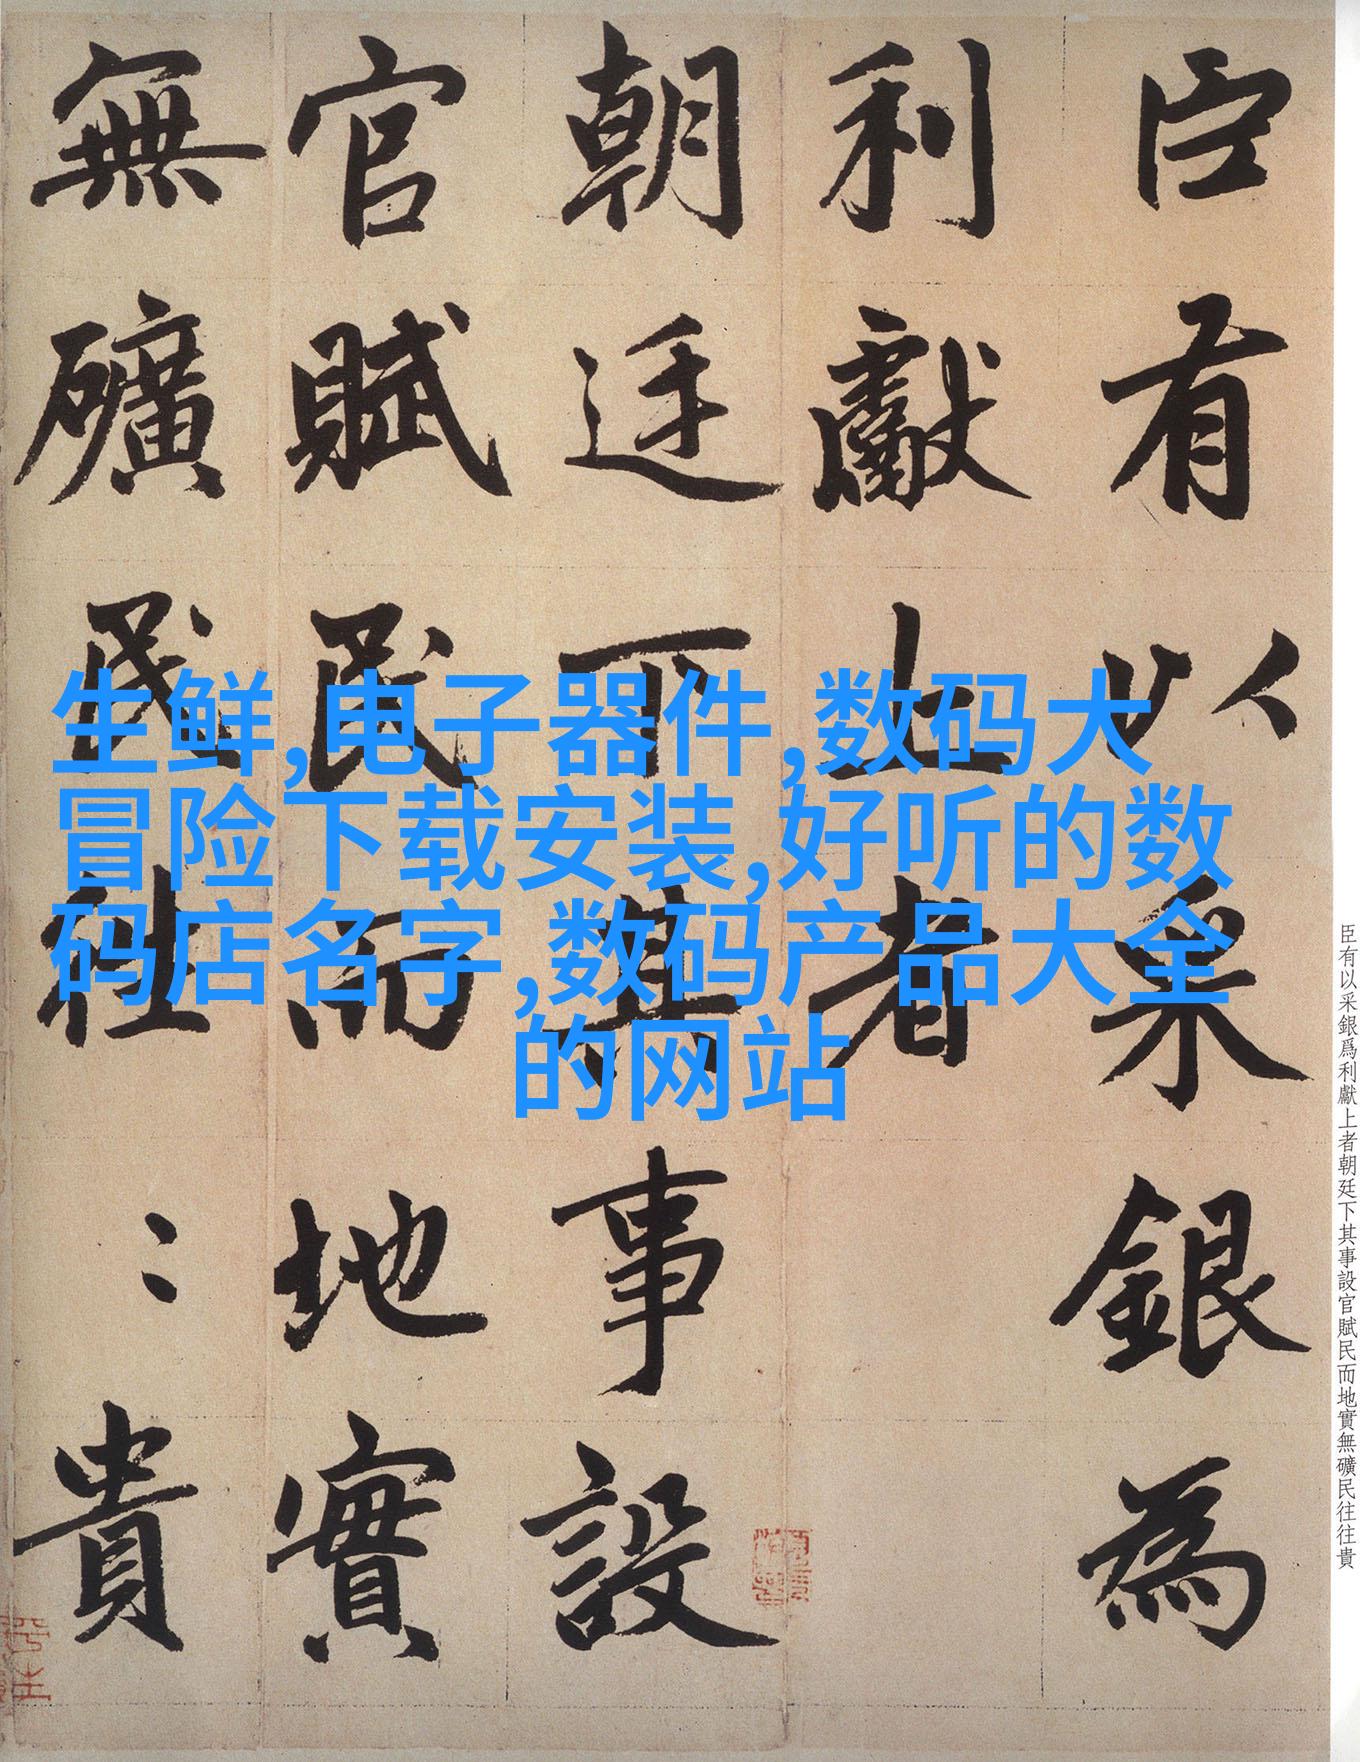 臣有以采銀為
利獻上者
朝廷下其事設
官賦民而地實
無礦民往〻貴
生鲜,电子器件,数码大
冒险下载安装,好听的数
码店名字,数码产品大全
的网站
臣有以采銀爲利獻上者朝廷下其事設官賦民而地實無礦民往往貴